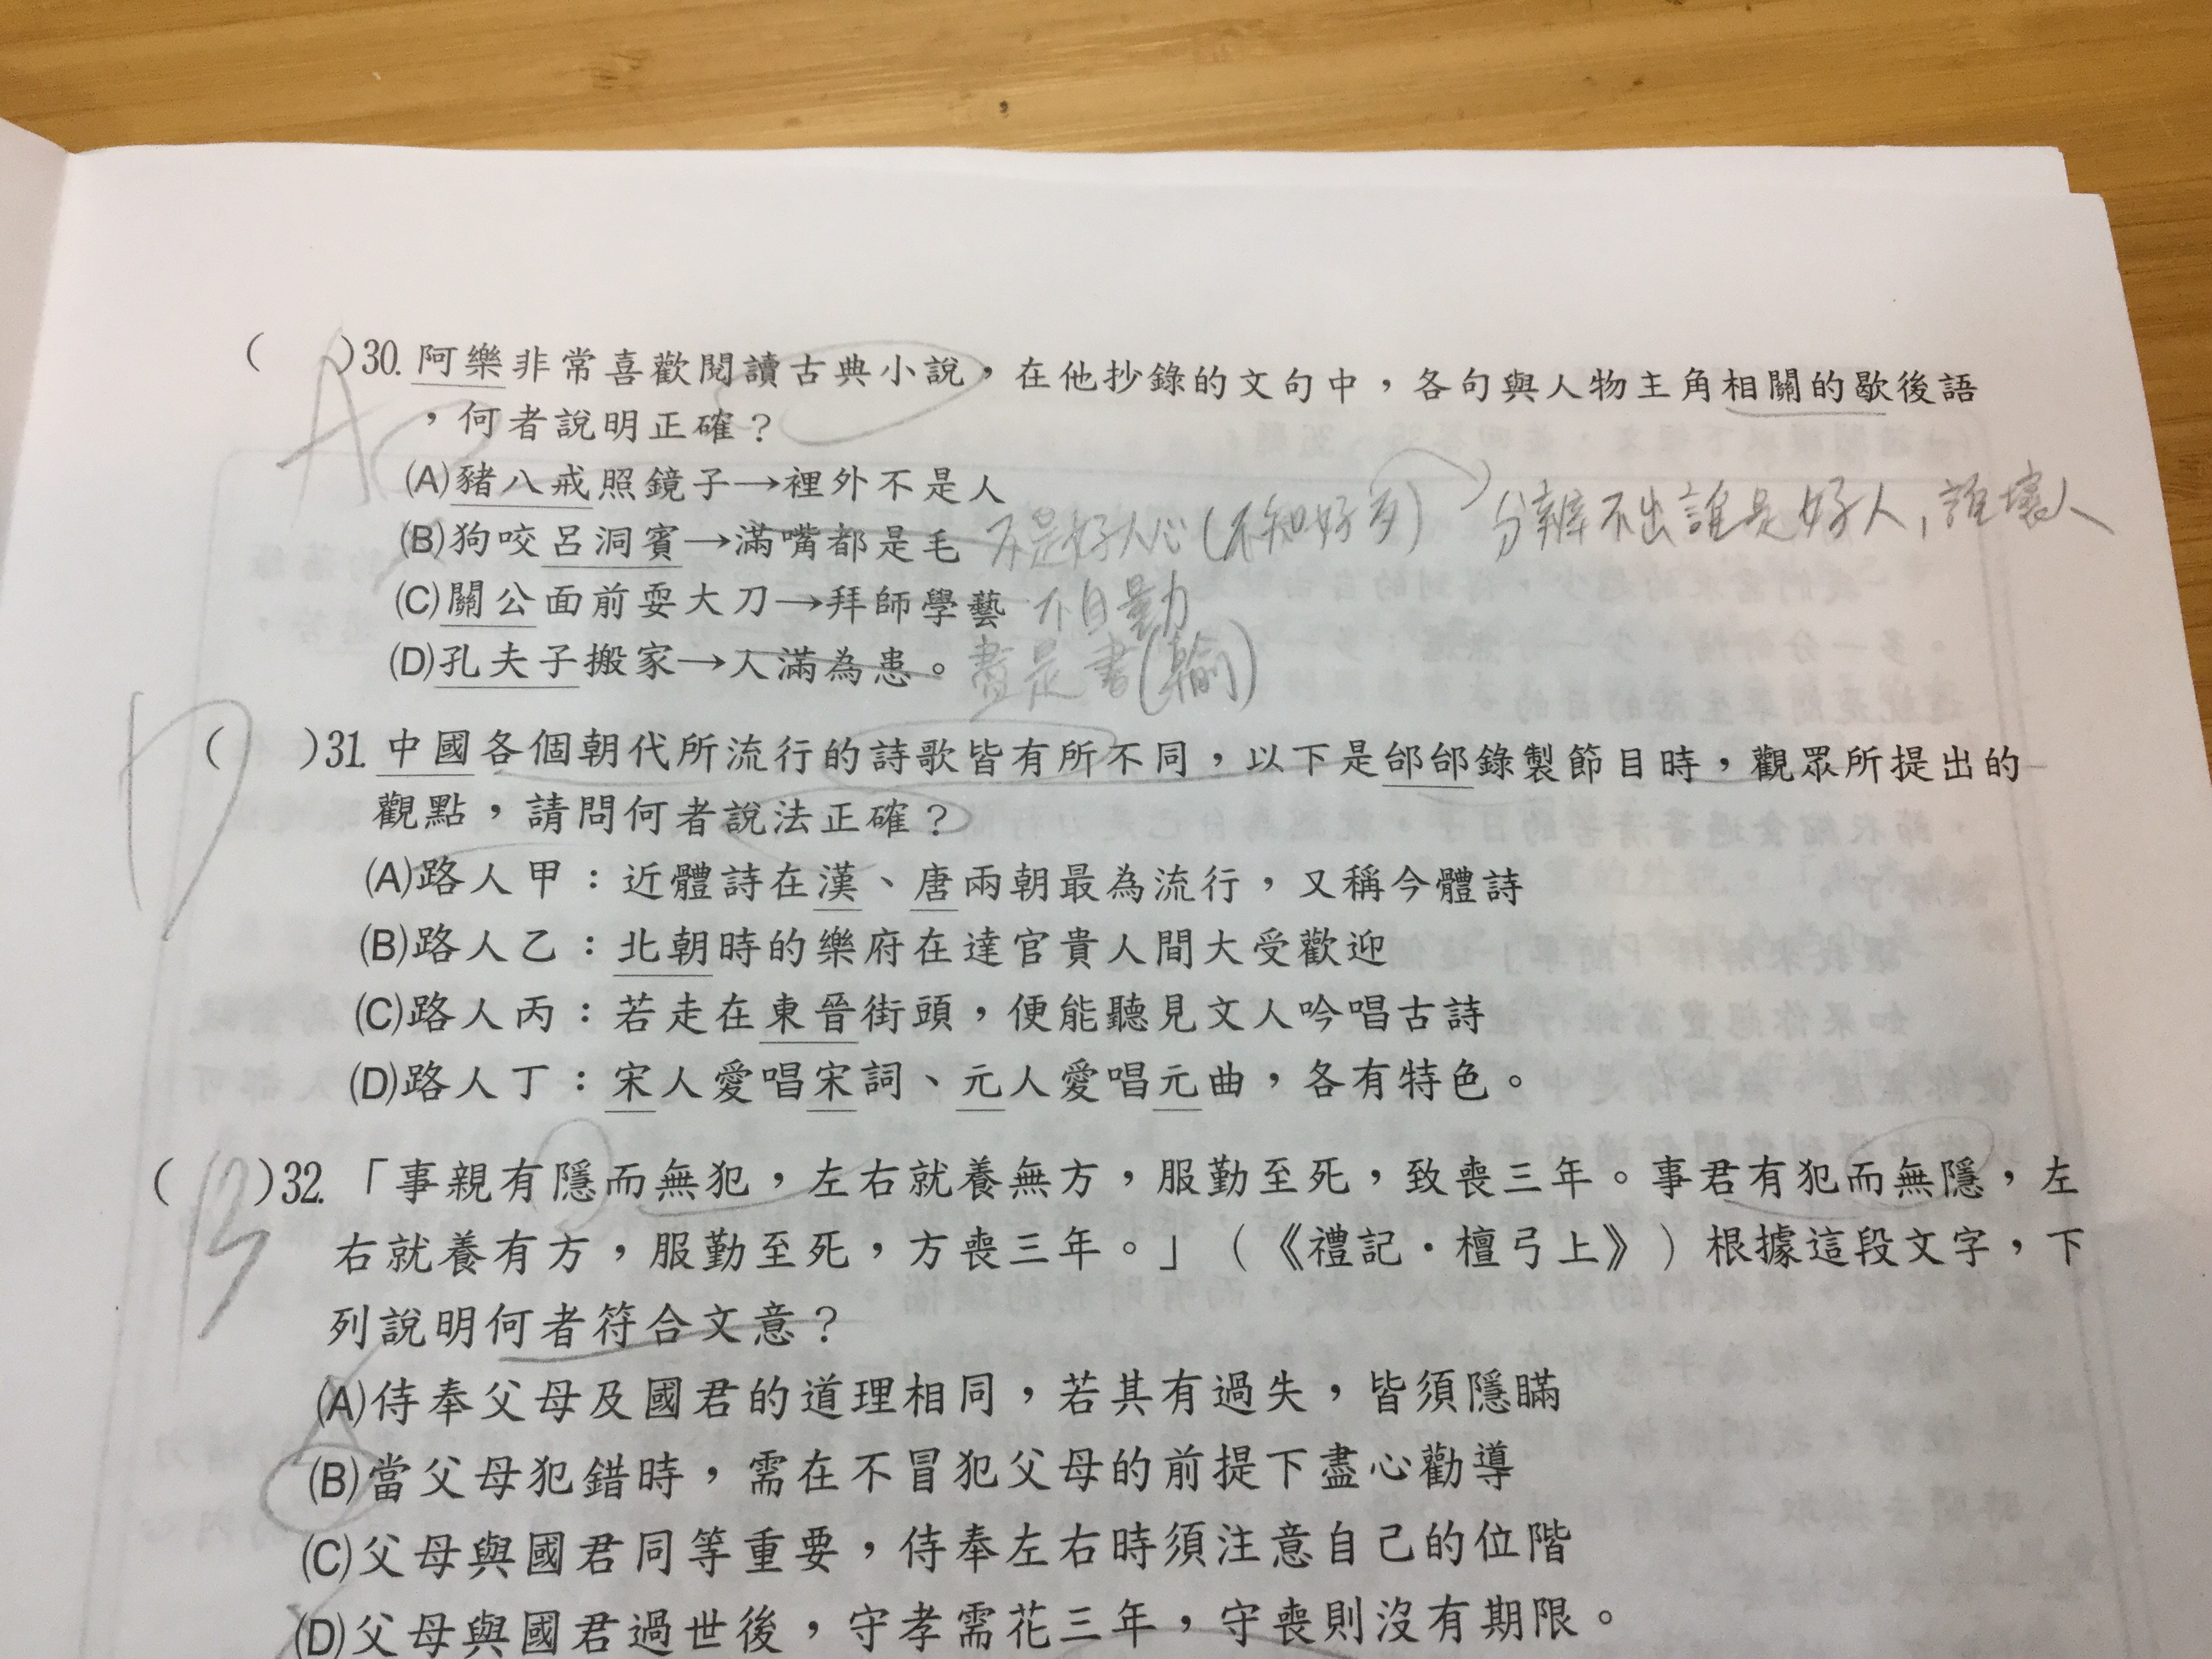 A
(　)30.阿樂非常喜歡閱讀古典小說，在他抄錄的文句中，各句與人物主角相關的歇後語
，何者說明正確？
(A)豬八戒照鏡子→裡外不是人
(B)狗咬呂洞賓→滿嘴都是毛 不是好人心(不知好歹) 分辨不出誰是好人，誰壞人
(C)關公面前耍大刀→拜師學藝 不自量力
(D)孔夫子搬家→人滿為患。盡是書(輸)
D
(　)31.中國各個朝代所流行的詩歌皆有所不同，以下是邰邰錄製節目時，觀眾所提出的
觀點，請問何者說法正確？
(A)路人甲：近體詩在漢、唐兩朝最為流行，又稱今體詩
(B)路人乙：北朝時的樂府在達官貴人間大受歡迎
(C)路人丙：若走在東晉街頭，便能聽見文人吟唱古詩
(D)路人丁：宋人愛唱宋詞、元人愛唱元曲，各有特色。
B
(　)32.「事親有隱而無犯，左右就養無方，服勤至死，致喪三年。事君有犯而無隱，左
右就養有方，服勤至死，方喪三年。」（《禮記·檀弓上》）根據這段文字，下
列說明何者符合文意？
(A)侍奉父母及國君的道理相同，若其有過失，皆須隱瞞
(B)當父母犯錯時，需在不冒犯父母的前提下盡心勸導
(C)父母與國君同等重要，侍奉左右時須注意自己的位階
(D)父母與國君過世後，守孝需花三年，守喪則沒有期限。